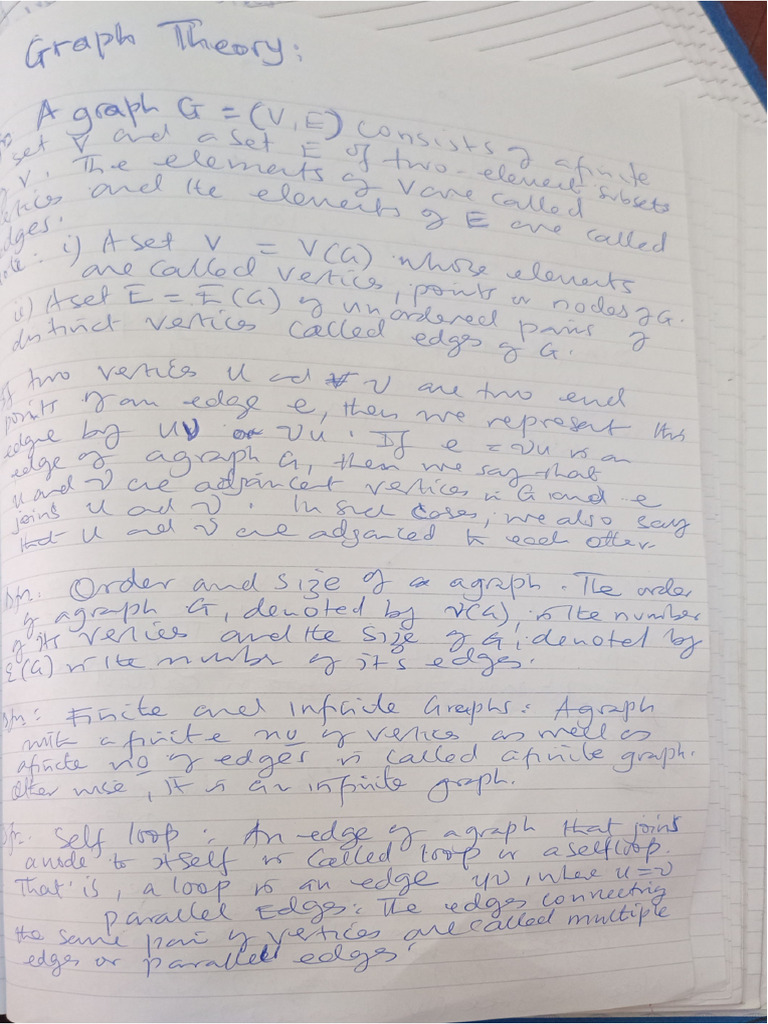 Graph Theory:
A graph G = (V, E) consists of a finite
set V and a set E of two-element subsets
of V. The elements of V are called
vertices and the elements of E are called
edges.
Note: i) A set V = V(G) whose elements
are called vertices, points or nodes of G.
ii) A set E = E(G) of unordered pairs of
distinct vertices called edges of G.
If two vertices u and v are two end
points of an edge e, then we represent this
edge by uv or vu. If e = vu is an
edge of a graph G, then we say that
u and v are adjancent vertices in G and e
joins u and v. In such cases, we also say
that u and v are adjanced to each other.
Dfn. Order and size of a graph. The order
of a graph G, denoted by v(G), is the number
of its vertices and the size of G, denoted by
ε(G) is the number of its edges.
Dfn: Finite and Infinite Graphs: A graph
with a finite no of vertices as well as
a finite no of edges is called a finite graph.
Otherwise, it is an infinite graph.
Dfn: Self loop: An edge of a graph that joins
a node to itself is called loop or a self loop.
That is, a loop is an edge uv, where u = v
Parallel Edges: The edges connecting
the same pair of vertices are called multiple
edges or parallel edges.